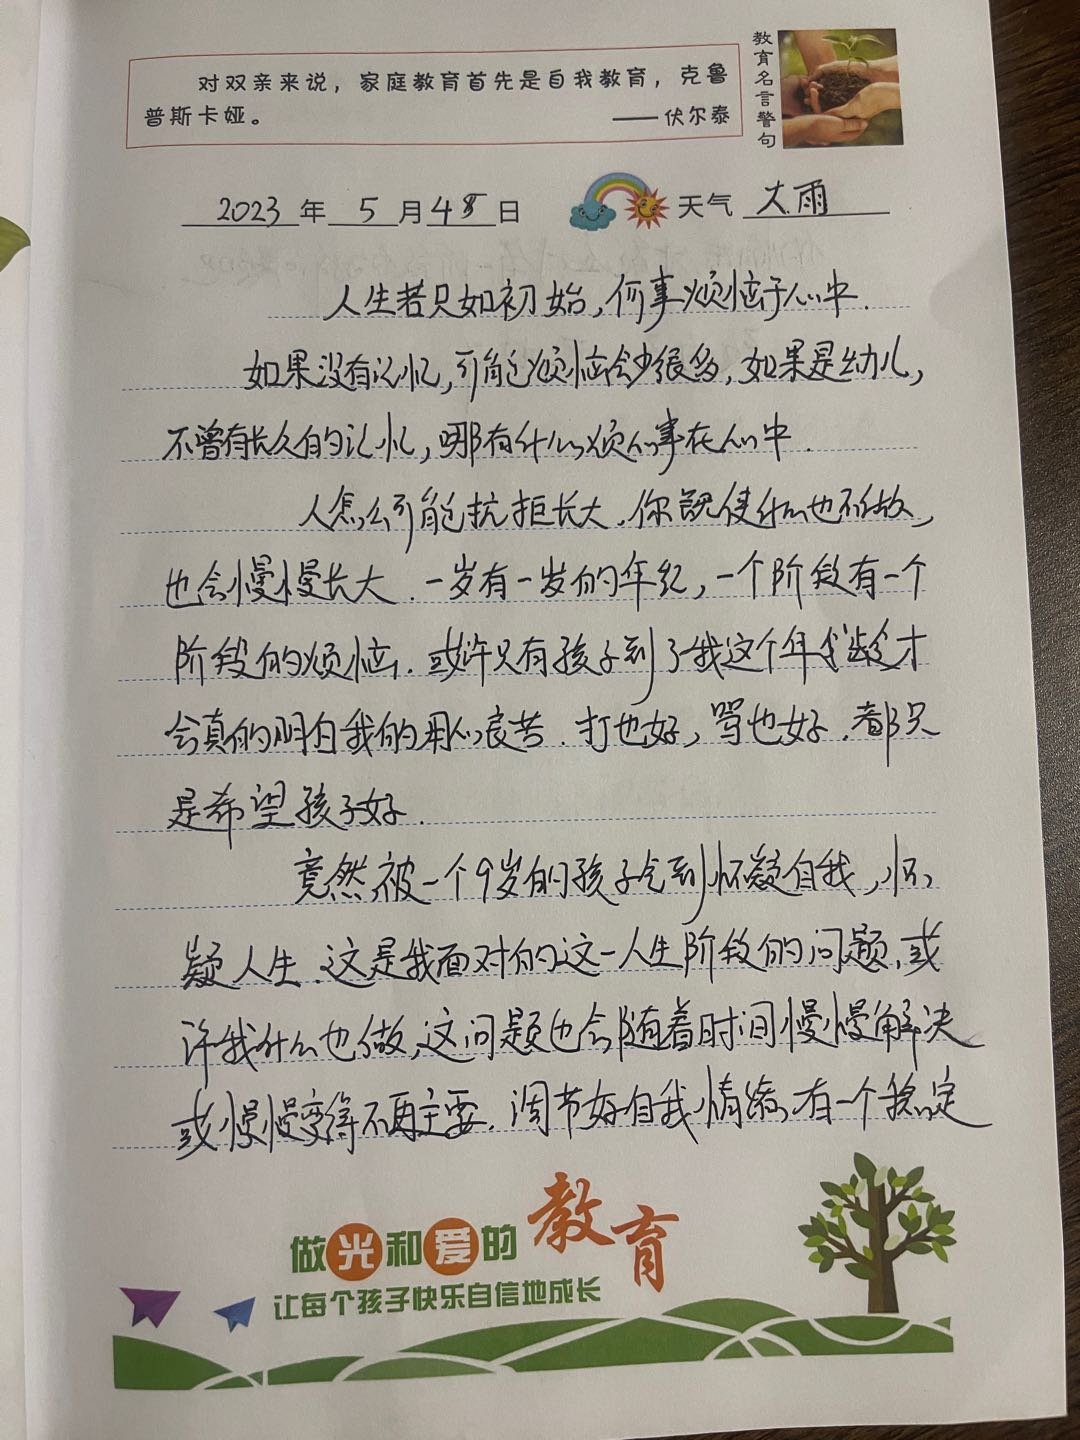 对双亲来说，家庭教育首先是自我教育，克鲁
普斯卡娅。 ——伏尔泰
教育名言警句
2023年5月4日 天气 大雨
人生若只如初始，何事烦恼于心中.
如果没有记忆，可能烦恼会少很多，如果是幼儿，
不曾有长久的记忆，哪有什么烦心事在心中.
人怎么可能抗拒长大.你既使什么也不做，
也会慢慢长大.一岁有一岁的年纪，一个阶段有一个
阶段的烦恼.或许只有孩子到了我这个年龄才
会真的明白我的用心良苦.打也好，骂也好.都只
是希望孩子好.
竟然被一个9岁的孩子气到怀疑自我，怀
疑人生.这是我面对的这一人生阶段的问题，或
许我什么也做，这问题也会随着时间慢慢解决
或慢慢变得不再主要.调节好自我情绪，有一个稳定
做光和爱的教育
让每个孩子快乐自信地成长